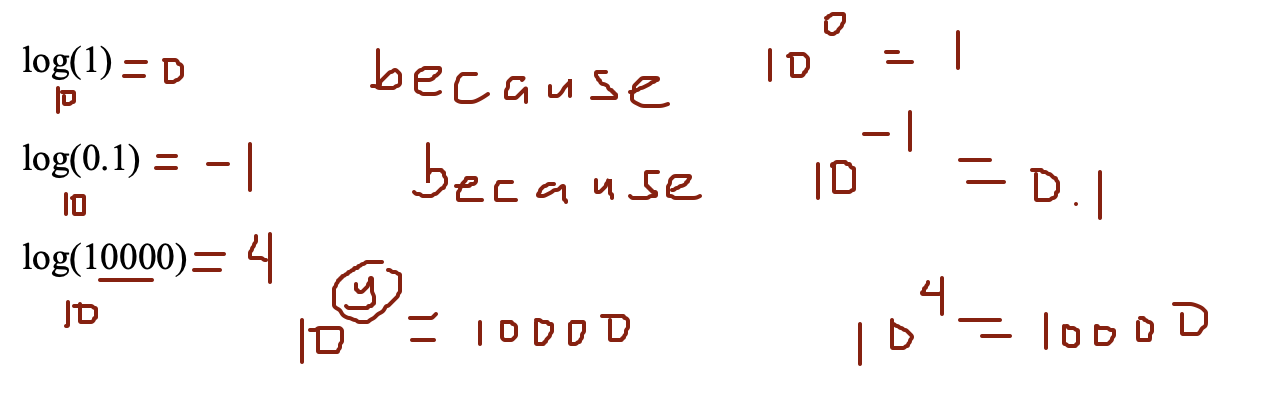 log₁₀(1) = 0 because 10⁰ = 1
log₁₀(0.1) = -1 because 10⁻¹ = 0.1
log₁₀(10000) = 4
10ʸ = 10000 10⁴ = 10000